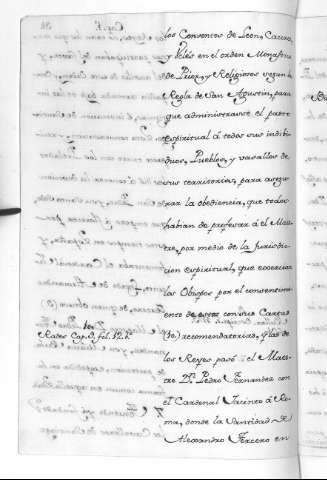 los Conventos de Leon, Caceres,
y Uclés en el orden Monastico
de Prior, y Religiosos segun la
Regla de San Agustin, para
que administrasen el pasto
espiritual á todos sus indibi-
duos, Pueblos, y vasallos de
sus territorios, para asegu-
rar la obediencia, que todos
habian de profesar á el Maes-
tre, por medio de la jurisdic-
cion espiritual, que exercian
los Obispos por el consentimi-
ento de estos con sus Cartas
(10) recomendatorias, y las de
los Reyes pasó el Maes-
tre Dn. Pedro Fernandez con
el Cardenal Jacinto á Ro-
ma, donde la Santidad de
Alexandro Tercero en
10
Rades Cap. fol. 12.